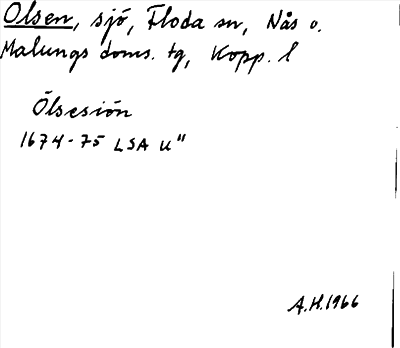 Olsen, sjö, Floda sn, Nås o.
Malungs doms. tg, Kopp. l
Ölsesiön
1674-75 LSA U"
A.H. 1966